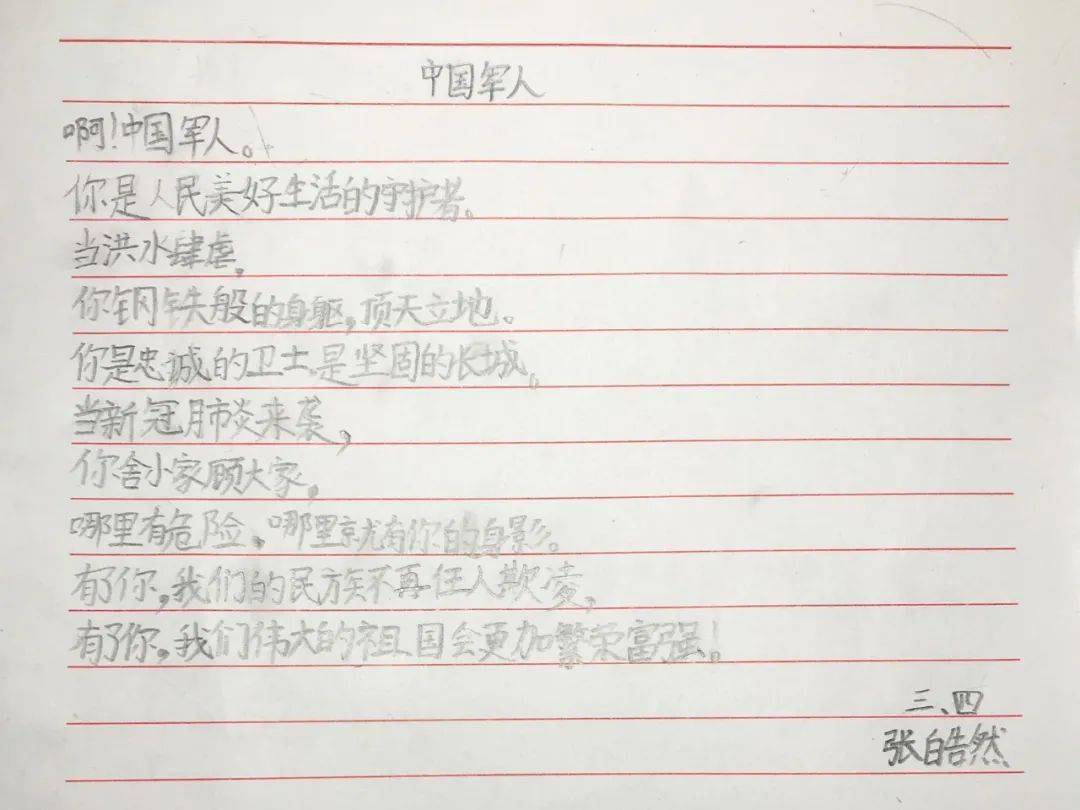 中国军人
啊!中国军人。
你是人民美好生活的守护者。
当洪水肆虐,
你钢铁般的身躯,顶天立地。
你是忠诚的卫士,是坚固的长城。
当新冠肺炎来袭,
你舍小家顾大家,
哪里有危险、哪里就有你的身影。
有了你,我们的民族不再任人欺凌,
有了你,我们伟大的祖国会更加繁荣富强!
三、四
张皓然